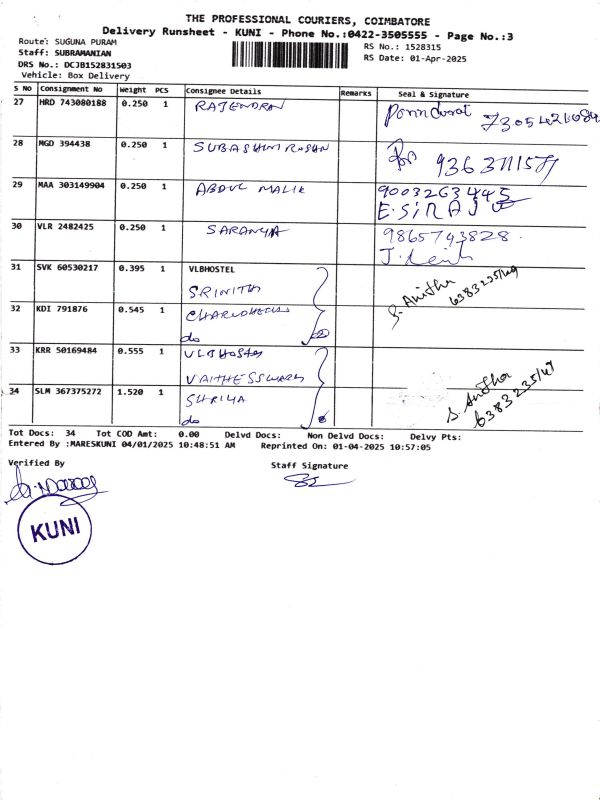 THE PROFESSIONAL COURIERS, COIMBATORE
Delivery Runsheet - KUNI - Phone No.:0422-3505555 - Page No.:3
Route: SUGUNA PURAM
RS No.: 1528315
Staff: SUBRAMANIAN
RS Date: 01-Apr-2025
DRS No.: DCJB152831503
Vehicle: Box Delivery
S No Consignment No Weight PCS Consignee Details Remarks Seal & Signature
27 HRD 743080188 0.250 1 RAJENDRAN
28 MGD 394438 0.250 1 SUBASHINI ROSHAN
29 MAA 303149904 0.250 1 ABDUL MALIK 9003263445
E.SIRAJ
30 VLR 2482425 0.250 1 SARANYA 9865743828
31 SVK 60530217 0.395 1 VLBHOSTEL
SRINITHI
S. Anitha
6383235149
32 KDI 791876 0.545 1
do
33 KRR 50169484 0.555 1 VLBHOSTEL
34 SLM 367375272 1.520 1 SHRIYA
do
S. Anitha
6383235149
Tot Docs: 34 Tot COD Amt: 0.00 Delvd Docs: Non Delvd Docs: Delvy Pts:
Entered By :MARESKUNI 04/01/2025 10:48:51 AM Reprinted On: 01-04-2025 10:57:05
Verified By
Staff Signature
KUNI